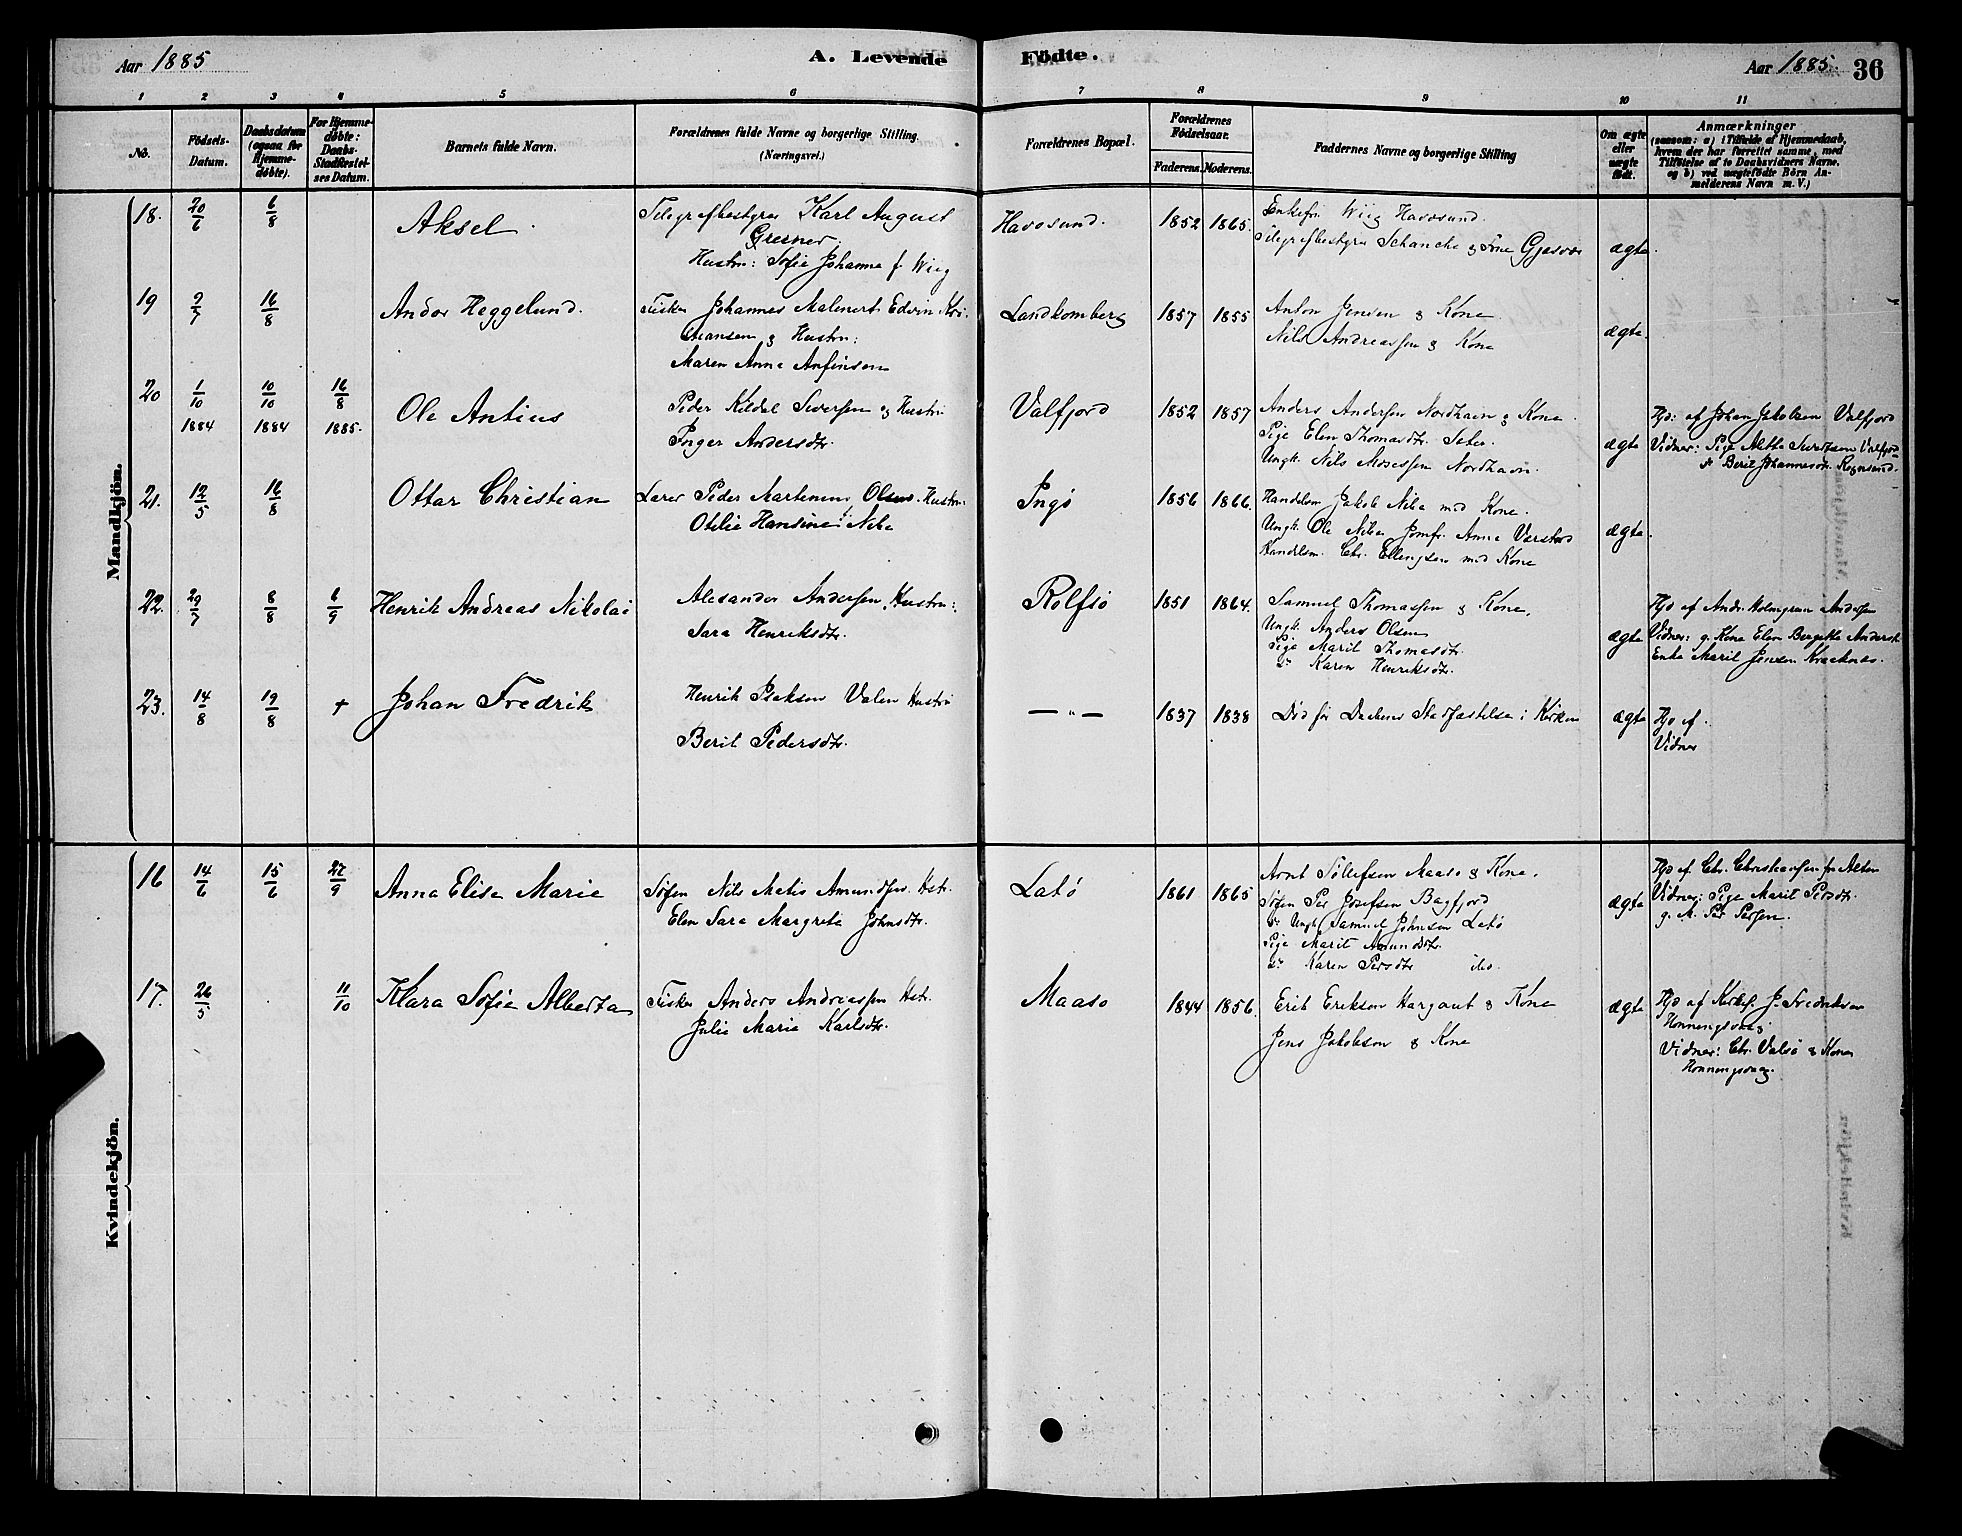 Aar 1885
A. Levende
Födte.
Aar 1885.
36
1 2 3 4 5 6 7 8 9 10 11
No.
Födsels-
Datum.
Daabsdatum
(ogsaa for
Hjemme-
döbte).
For Hjemme-
döbte:
Daabs-
Stadfæstel-
ses Datum.
Barnets fulde Navn.
Forældrenes fulde Navne og borgerlige Stilling.
(Næringsvei.)
Forældrenes Bopæl.
Forældrenes
Födselsaar.
Faderens. Moderens.
Faddernes Navne og borgerlige Stilling
Om ægte
eller
uægte
födt.
Anmærkninger
(saasom: a) i Tilfælde af Hjemmedaab,
hvem der har forrettet samme, med
Tilföielse af to Daabsvidners Navne,
og b) ved uægtefödte Börn An-
melderens Navn m. V.)
Mandkjön.
18. 20/6 6/8 Aksel.
Telegrafbestyrer Karl August
Greener.
Hustru: Sofie Johanna f. Wiig
Havosund. 1852 1865.
Enkefru Wiig Havosund.
Telegrafbestyrer Schanche & Frue Gjesvær
ægte.
19 2/7 16/8 Andor Heggelund.
Fisker Johannes Malenert Edvin Kri-
stiansen & Hustru:
Maren Anna Anfinsen
1857 1855
Anton Jensen & Kone.
Nils Andreassen & Kone
ægte.
20 1/10 1884 10/10 1884 16/8 1885. Ole Antius
Peder Kildal Seversen og Hustru
Inger Andersdtr.
Valfjord 1852 1857
Anders Andersen Nordhavn & Kone.
Pige Elen Thomasdtr.
Ungk. Nils Mosessen Nordhavn.
ægte
Hjd: af Johan Jakobsen Valfjord
Vidner: Pige Valfjord
Berit Johannesdtr. Rognsund.
21. 12/5 16/8 Ottar Christian
Lærer Peder Martinius Olsen. Hustru:
Otilie Hansine f. Neba
Ingö 1856 1866.
Handelsm Jakob Neba med Kone.
Ungk. Ole Jomfr. Anna
Handelsm. Chr. Ellengsen med Kone
ægte.
22. 29/7 8/8 6/9 Henrik Andreas Nikolai
Alexander Andersen. Hustru:
Sara Henriksdtr.
Rolfsö 1851 1864.
Samuel Thomassen & Kone.
Ungk. Anders Olsen
Pige Marit Thomasdtr.
do Karen Henriksdtr.
ægte
Hjd af Andr. Holmgren Andersen
Vidner: g. Kone Elen Bergitta
Enke Marit Jensen
23. 14/8 19/8 + Johan Fredrik
Henrik Isaksen Valen Hustru
Berit Pedersdtr.
— " — 1837 1838
Död før Daabens Stadfæstelse i Kirken
ægte
Hjd af.
Vidner
Kvindekjön.
16 14/6 15/6 27/9 Anna Elise Marie
Søfin Nils Matis Amundsen. Hstr.
Elen Sara Margreta Johnsdtr.
Latö 1861 1865
Arnt Tollefsen Maasö & Kone.
Søfin Per Josefsen Bagfjord
do Ungk Samuel Johnsen Latö
Pige Marit Amundsdtr.
do Karen Persdtr ibd.
ægte
Hjd af Chr. Christiansen fra Alten
Vidner: Pige Marit Persdtr.
g. M. Per Persen.
17. 26/5 11/10 Klara Sofie Alberta
Fisker Anders Andreassen Hstr.
Julie Marie Karlsdtr.
Maasö 1844 1856.
Erik Eriksen Hargaut & Kone
Jens Jakobsen & Kone
ægte
Hjd af Kirkes. J. Fredriksen
Honningsvaag
Vidner: Chr. Valsö & Kone
Honningsvaag.